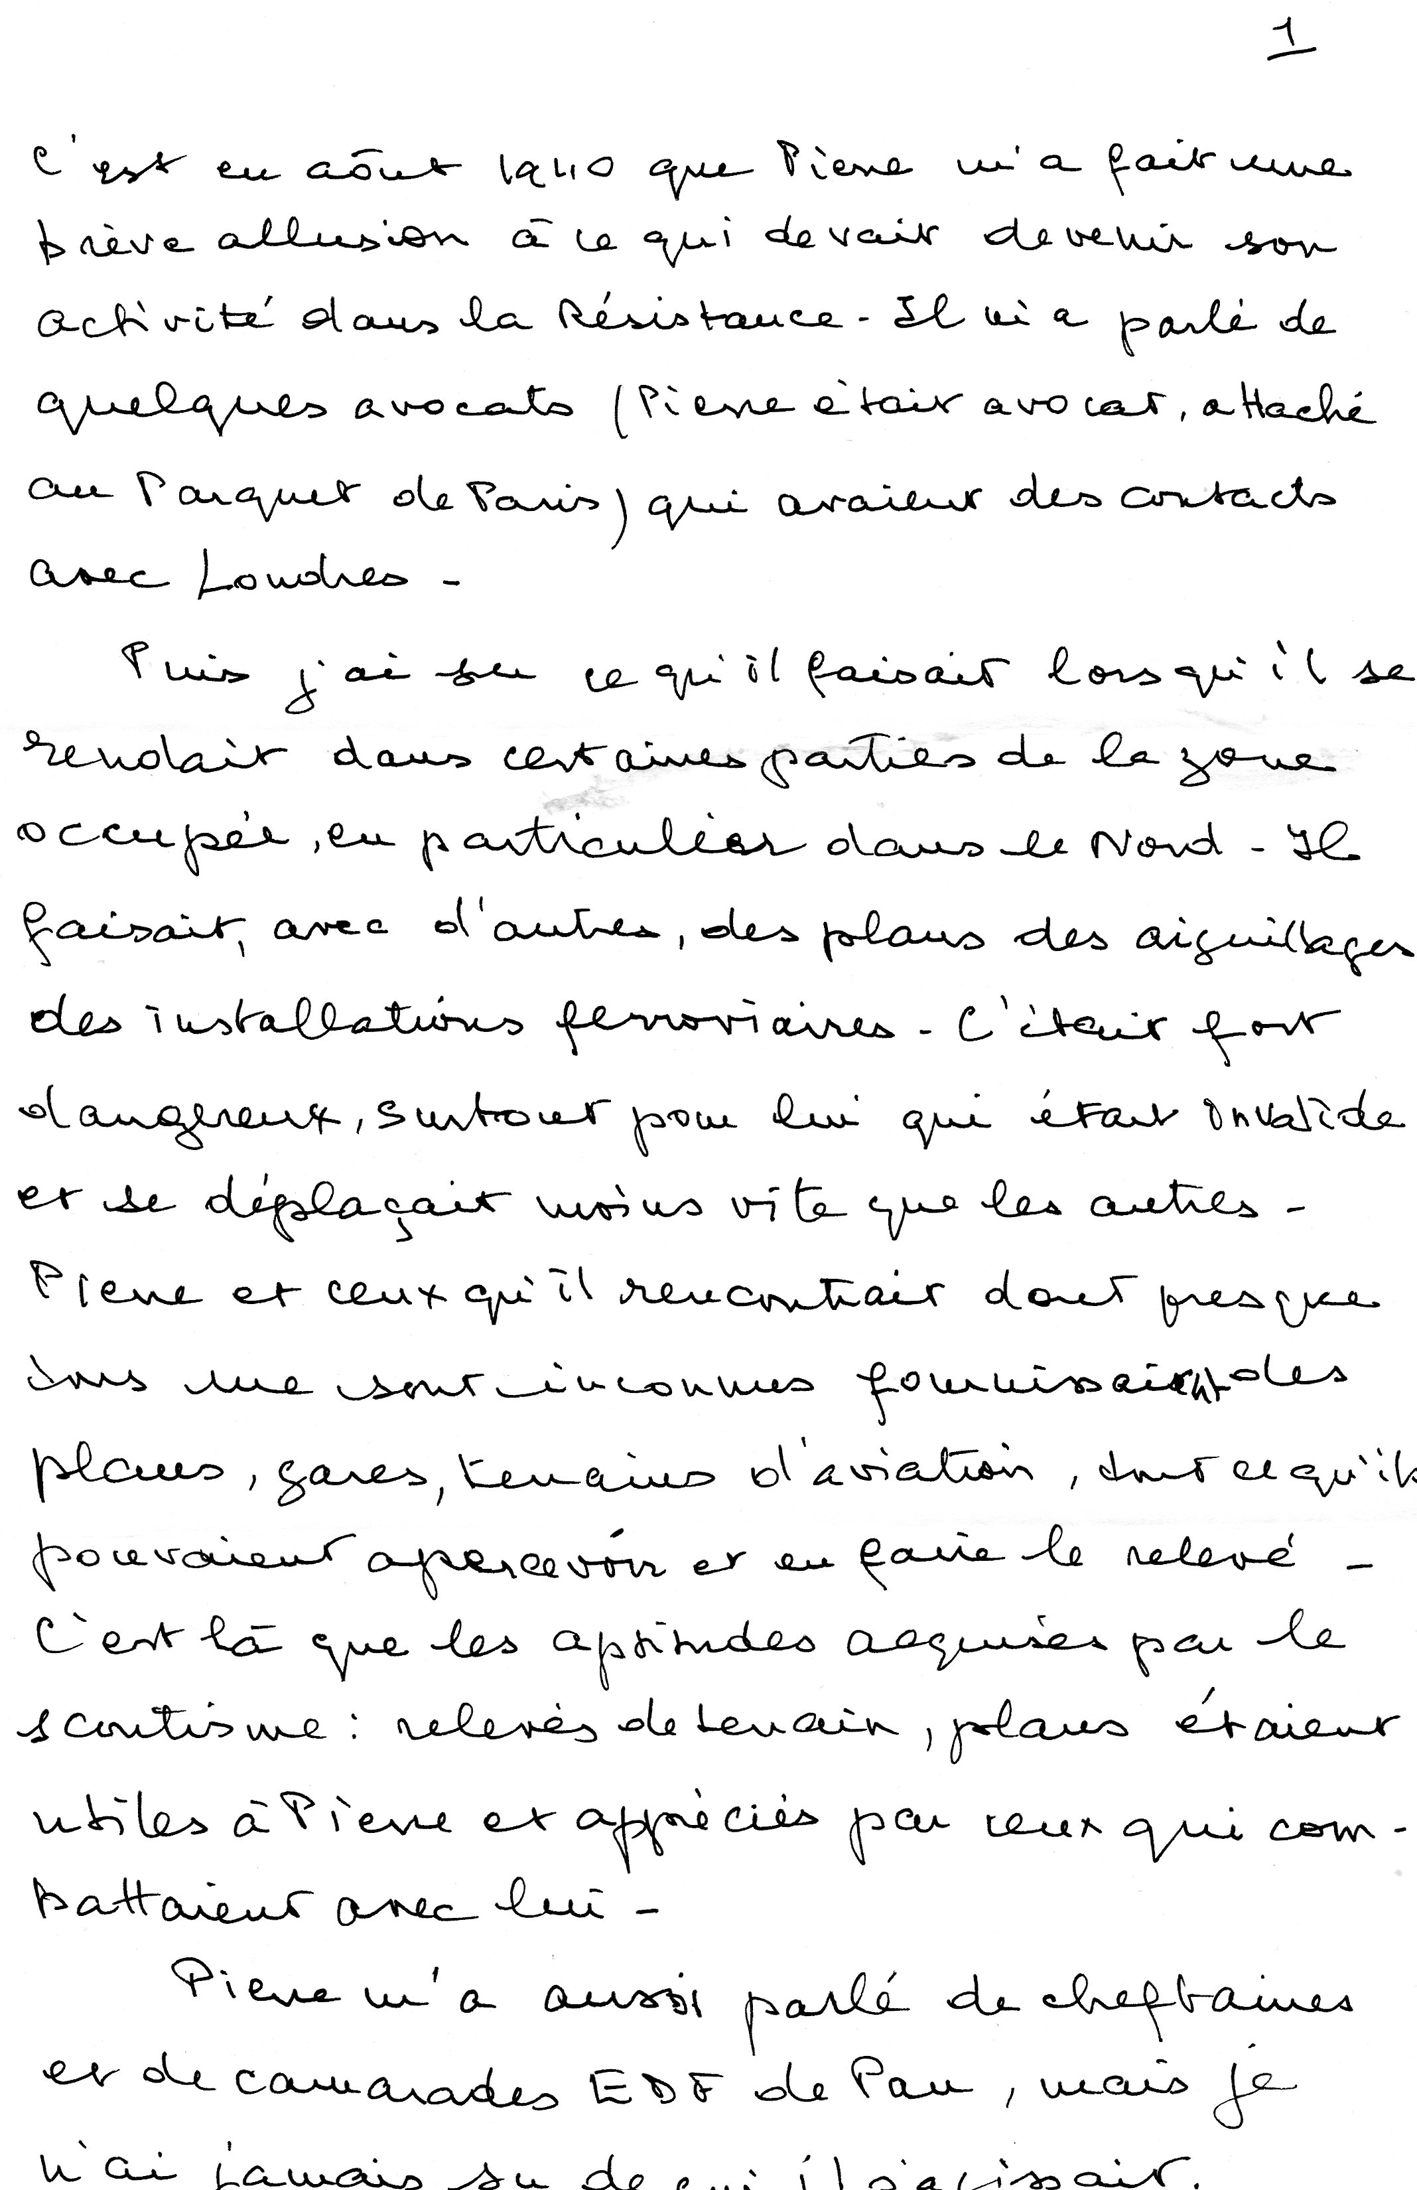 1
C'est en août 1940 que Pierre m'a fait une
brève allusion à ce qui devait devenir son
activité dans la Résistance - Il m'a parlé de
quelques avocats (Pierre était avocat, attaché
au Parquet de Paris) qui avaient des contacts
avec Londres -
Puis j'ai su ce qu'il faisait lorsqu'il se
rendait dans certaines parties de la zone
occupée, en particulier dans le Nord - Il
faisait, avec d'autres, des plans des aiguillages
des installations ferroviaires - C'était fort
dangereux, surtout pour lui qui était invalide
et se déplaçait moins vite que les autres -
Pierre et ceux qu'il rencontrait dont presque
tous me sont inconnus fournissaient des
plans, gares, terrains d'aviation, tout ce qu'ils
pouvaient apercevoir et en faire le relevé -
C'est là que les aptitudes acquises par le
scoutisme : relevés de terrain, plans étaient
utiles à Pierre et appréciés par ceux qui com-
battaient avec lui -
Pierre m'a aussi parlé de cheftaines
et de camarades EDF de Pau, mais je
n'ai jamais su de qui il s'agissait.